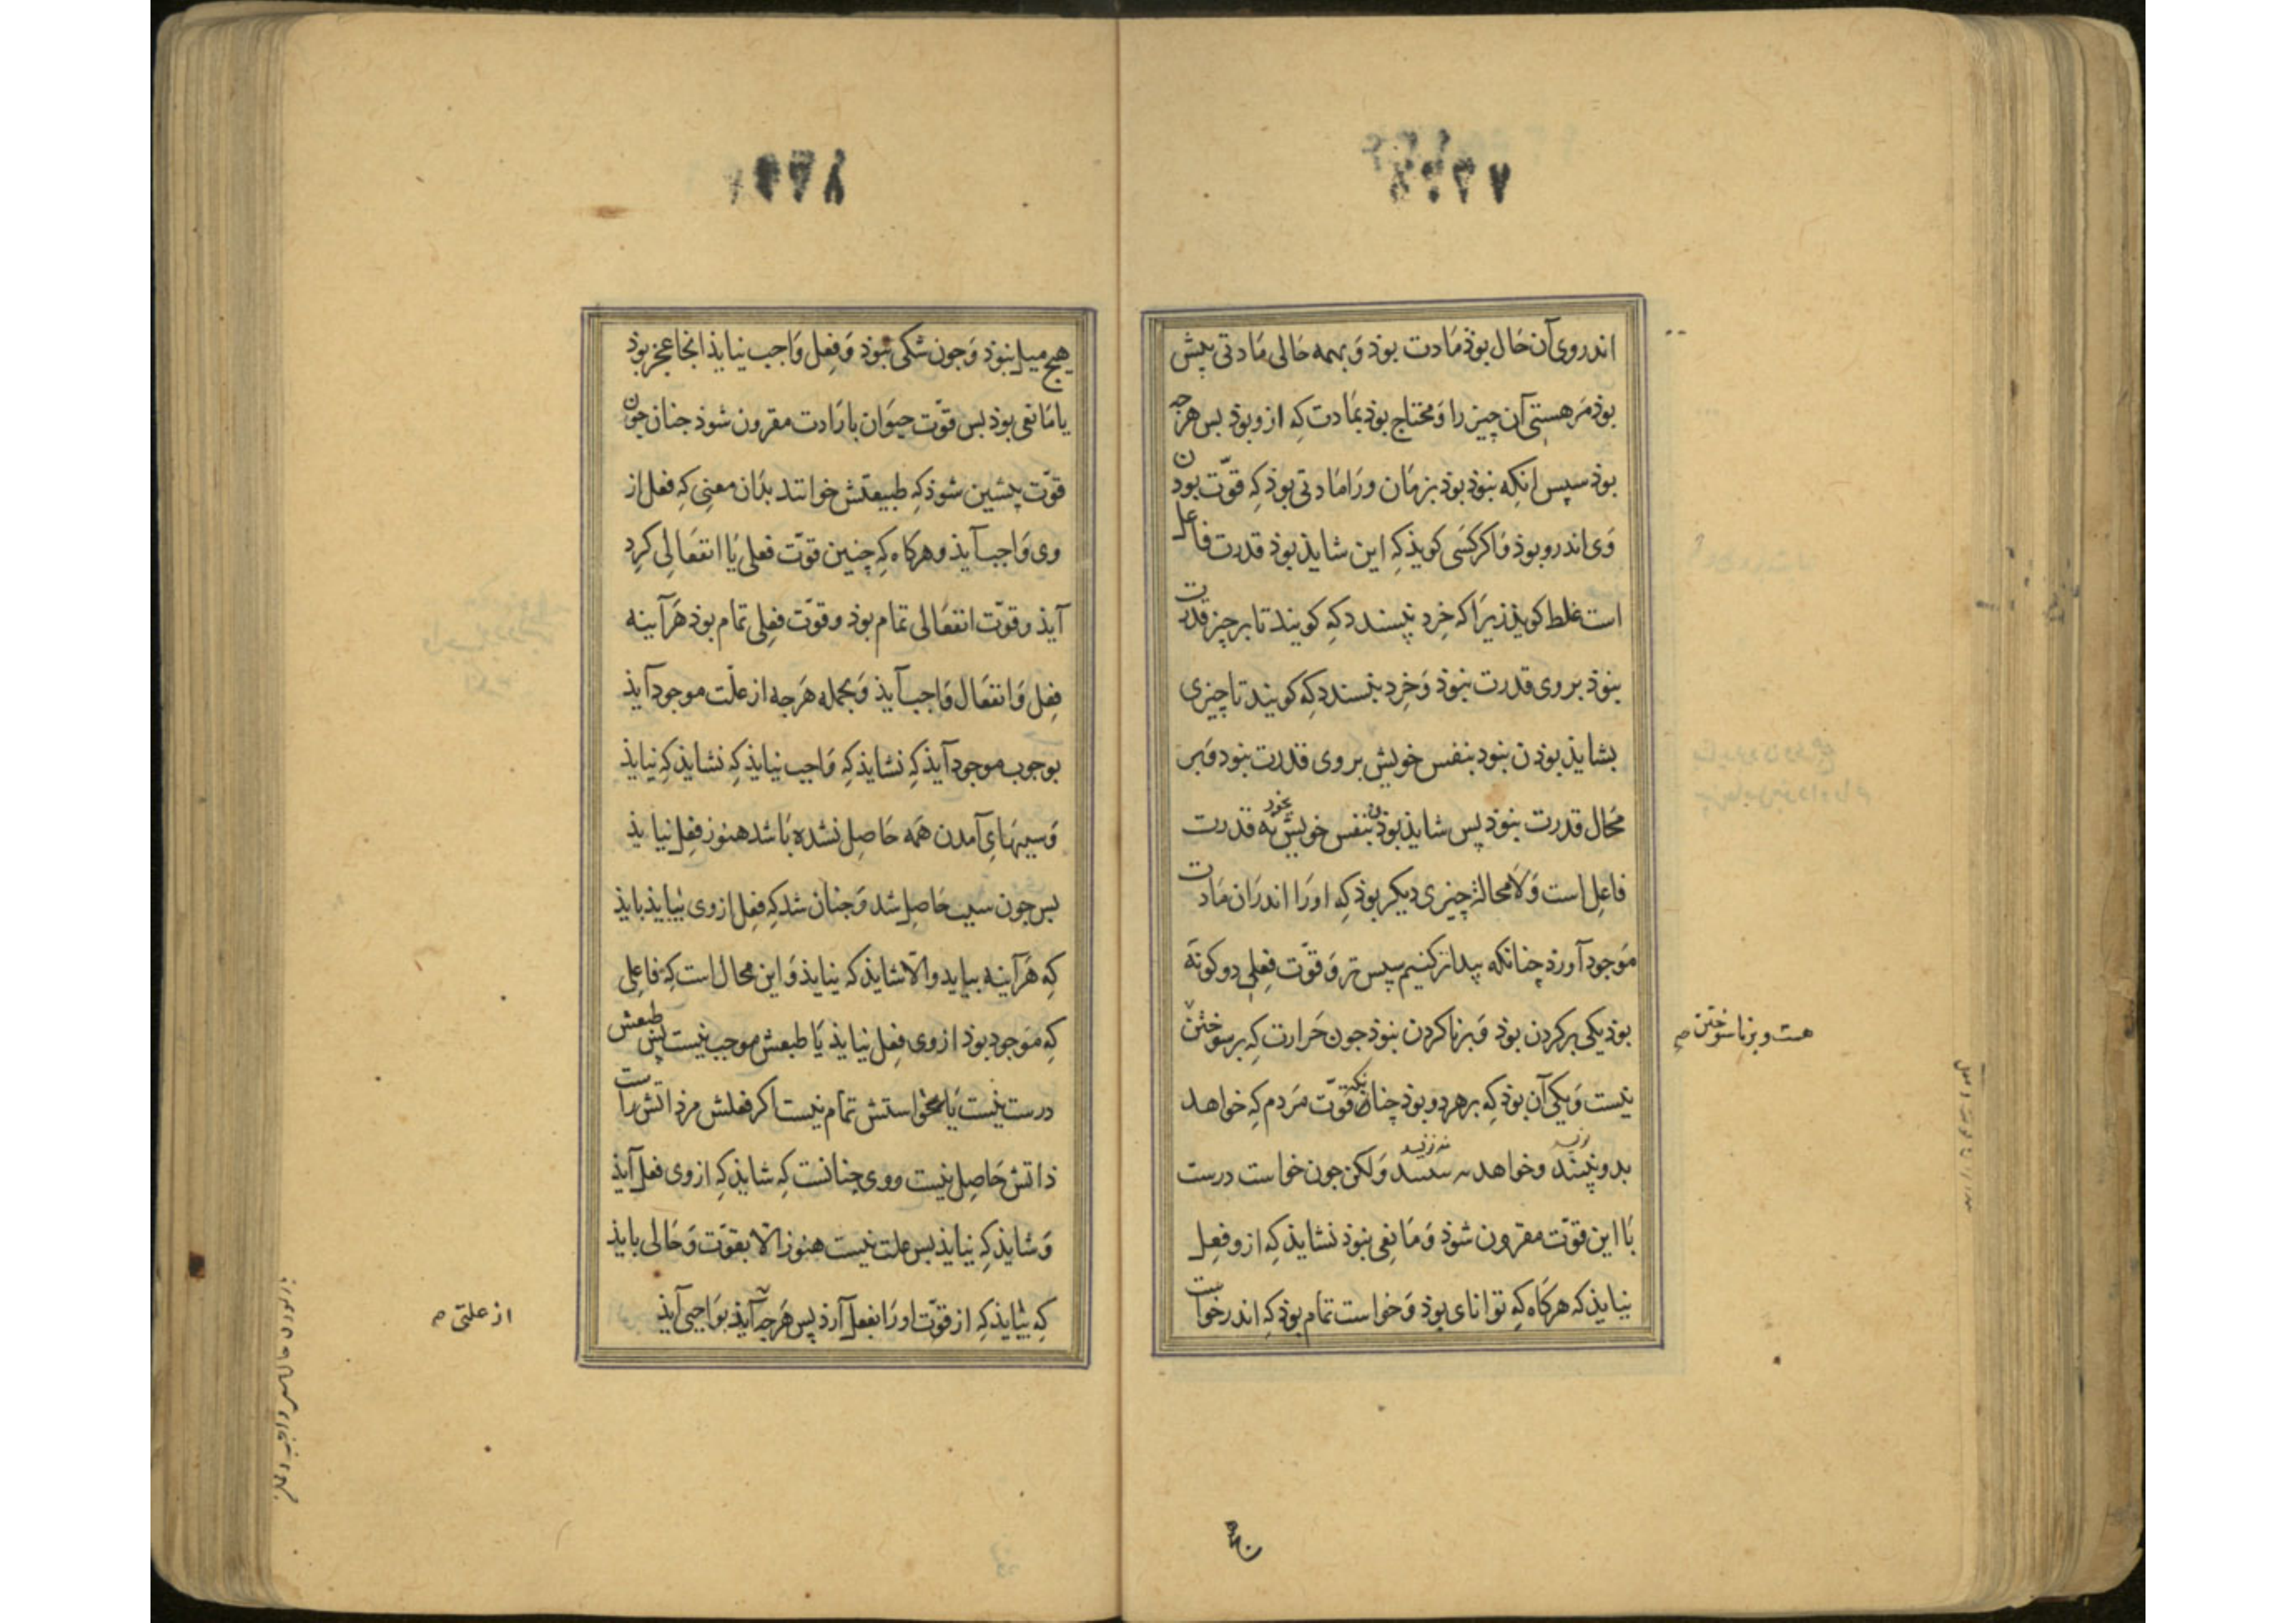 اندر روی آن حَال بوذ مَادت بوذ وَ بهمه حَالی مَادتی پیش
بوذ مَر هستیِ آن چیز را وَ محتاج بوذ بمَادت کِه ازو بوذ بس هرجه
بوذ سپس انکِه نبوذ بوذ بزمَان ورَا مَادتی بوذ کِه قوّت بودن
وَی اندرو بوذ وَ اکر کسَی کویذ کِه این شایذ بوذ قدرت فاعل
است غلط کویذ زیرَا که خِرد نپسندد کِه کویند تا بر چیز قدرت
نبوذ بر وی قدرت نبوذ وَ خِرد بپسندد کِه کویند تا چیزی
بشایذ بوذن نبود بنفس خویش بر وی قدرت نبود وَ بر
محَال قدرت نبوذ پس شایذ بوذن بنفس خویش نه بخود قدرت
فاعِل است وَ لَامحاله چیزی دیکر بوذ کِه اورَا اندرَان مَادت
مَوجود آورذ چنانکه پیدَا تر کنیم سپس تر وَ قوّت فِعلی دو کونَه
بوذ یکی بر کردن بوذ وَ بر ناکردن نبوذ جون حَرارت کِه بر سوختن
هست و بر ناسوختن صح
نیست وَ یکی آن بوذ کِه بر هر دو بوذ چنانکه قوّت مَردم کِه خواهد
بدو بیند وخواهد نه بیند وَلکن جون خواست درست
بَا این قوّت مقرون شوذ وَ مَانِعی نبوذ نشایذ کِه ازو فِعل
نیایذ کِه هر کَاه کِه توانای بوذ وَ خواست تمام بوذ کِه اندر خواست
هیج میل نبوذ وَ جون شکی نبوذ وَ فِعل وَاجب نیایذ انجا عجز بوذ
یا مَانعی بوذ بس قوّت حیوَان با ارَادت مقرون شوذ جنان جون
قوّت پیشین شوذ کِه طبیعتش خوانند بدَان معنی کِه فعل از
وی وَاجب آیذ و هر کَاه کِه چنین قوّت فعلی یَا انفعَالِی کرِد
آیذ و قوّت انفعَالی تمام بوذ و قوّت فعِلی تمام بوذ هَرآینه
فِعل وَ انفعَال وَاجب آیذ وَ بجمله هَرجه از علّت موجود آیذ
بوجوب موجود آیذ کِه نشایذ کِه وَاجب نیایذ کِه نشایذ کِه نیایذ
وَ سببهَایِ آمدن همَه حَاصِل نشده بَاشد هنوز فِعل نیایذ
بس جون سبب حَاصِل شد وَ جنان شد کِه فِعل از وی بیایذ بایذ
کِه هَرآینه بیاید والّا شایذ کِه نیایذ وَ این محال است کِه فاعِلی
کِه مَوجود بوذ از وی فِعل نیایذ یَا طبعش موجب نیست پس طبعش
درست نیست یَا بخواستش تمام نیست اکر فعلش مر ذاتش راست
ذاتش حَاصِل نیست و وی چنانست کِه شایذ کِه از وی فعل آیذ
وَ شایذ کِه نیایذ بس علت نیست هنوز الّا بقوّت وَ حَالی بایذ
کِه بیایذ کِه از قوّت اورَا بفعل آرذ پس هَرجه آیذ بوَاجبی آیذ
از علتی صح